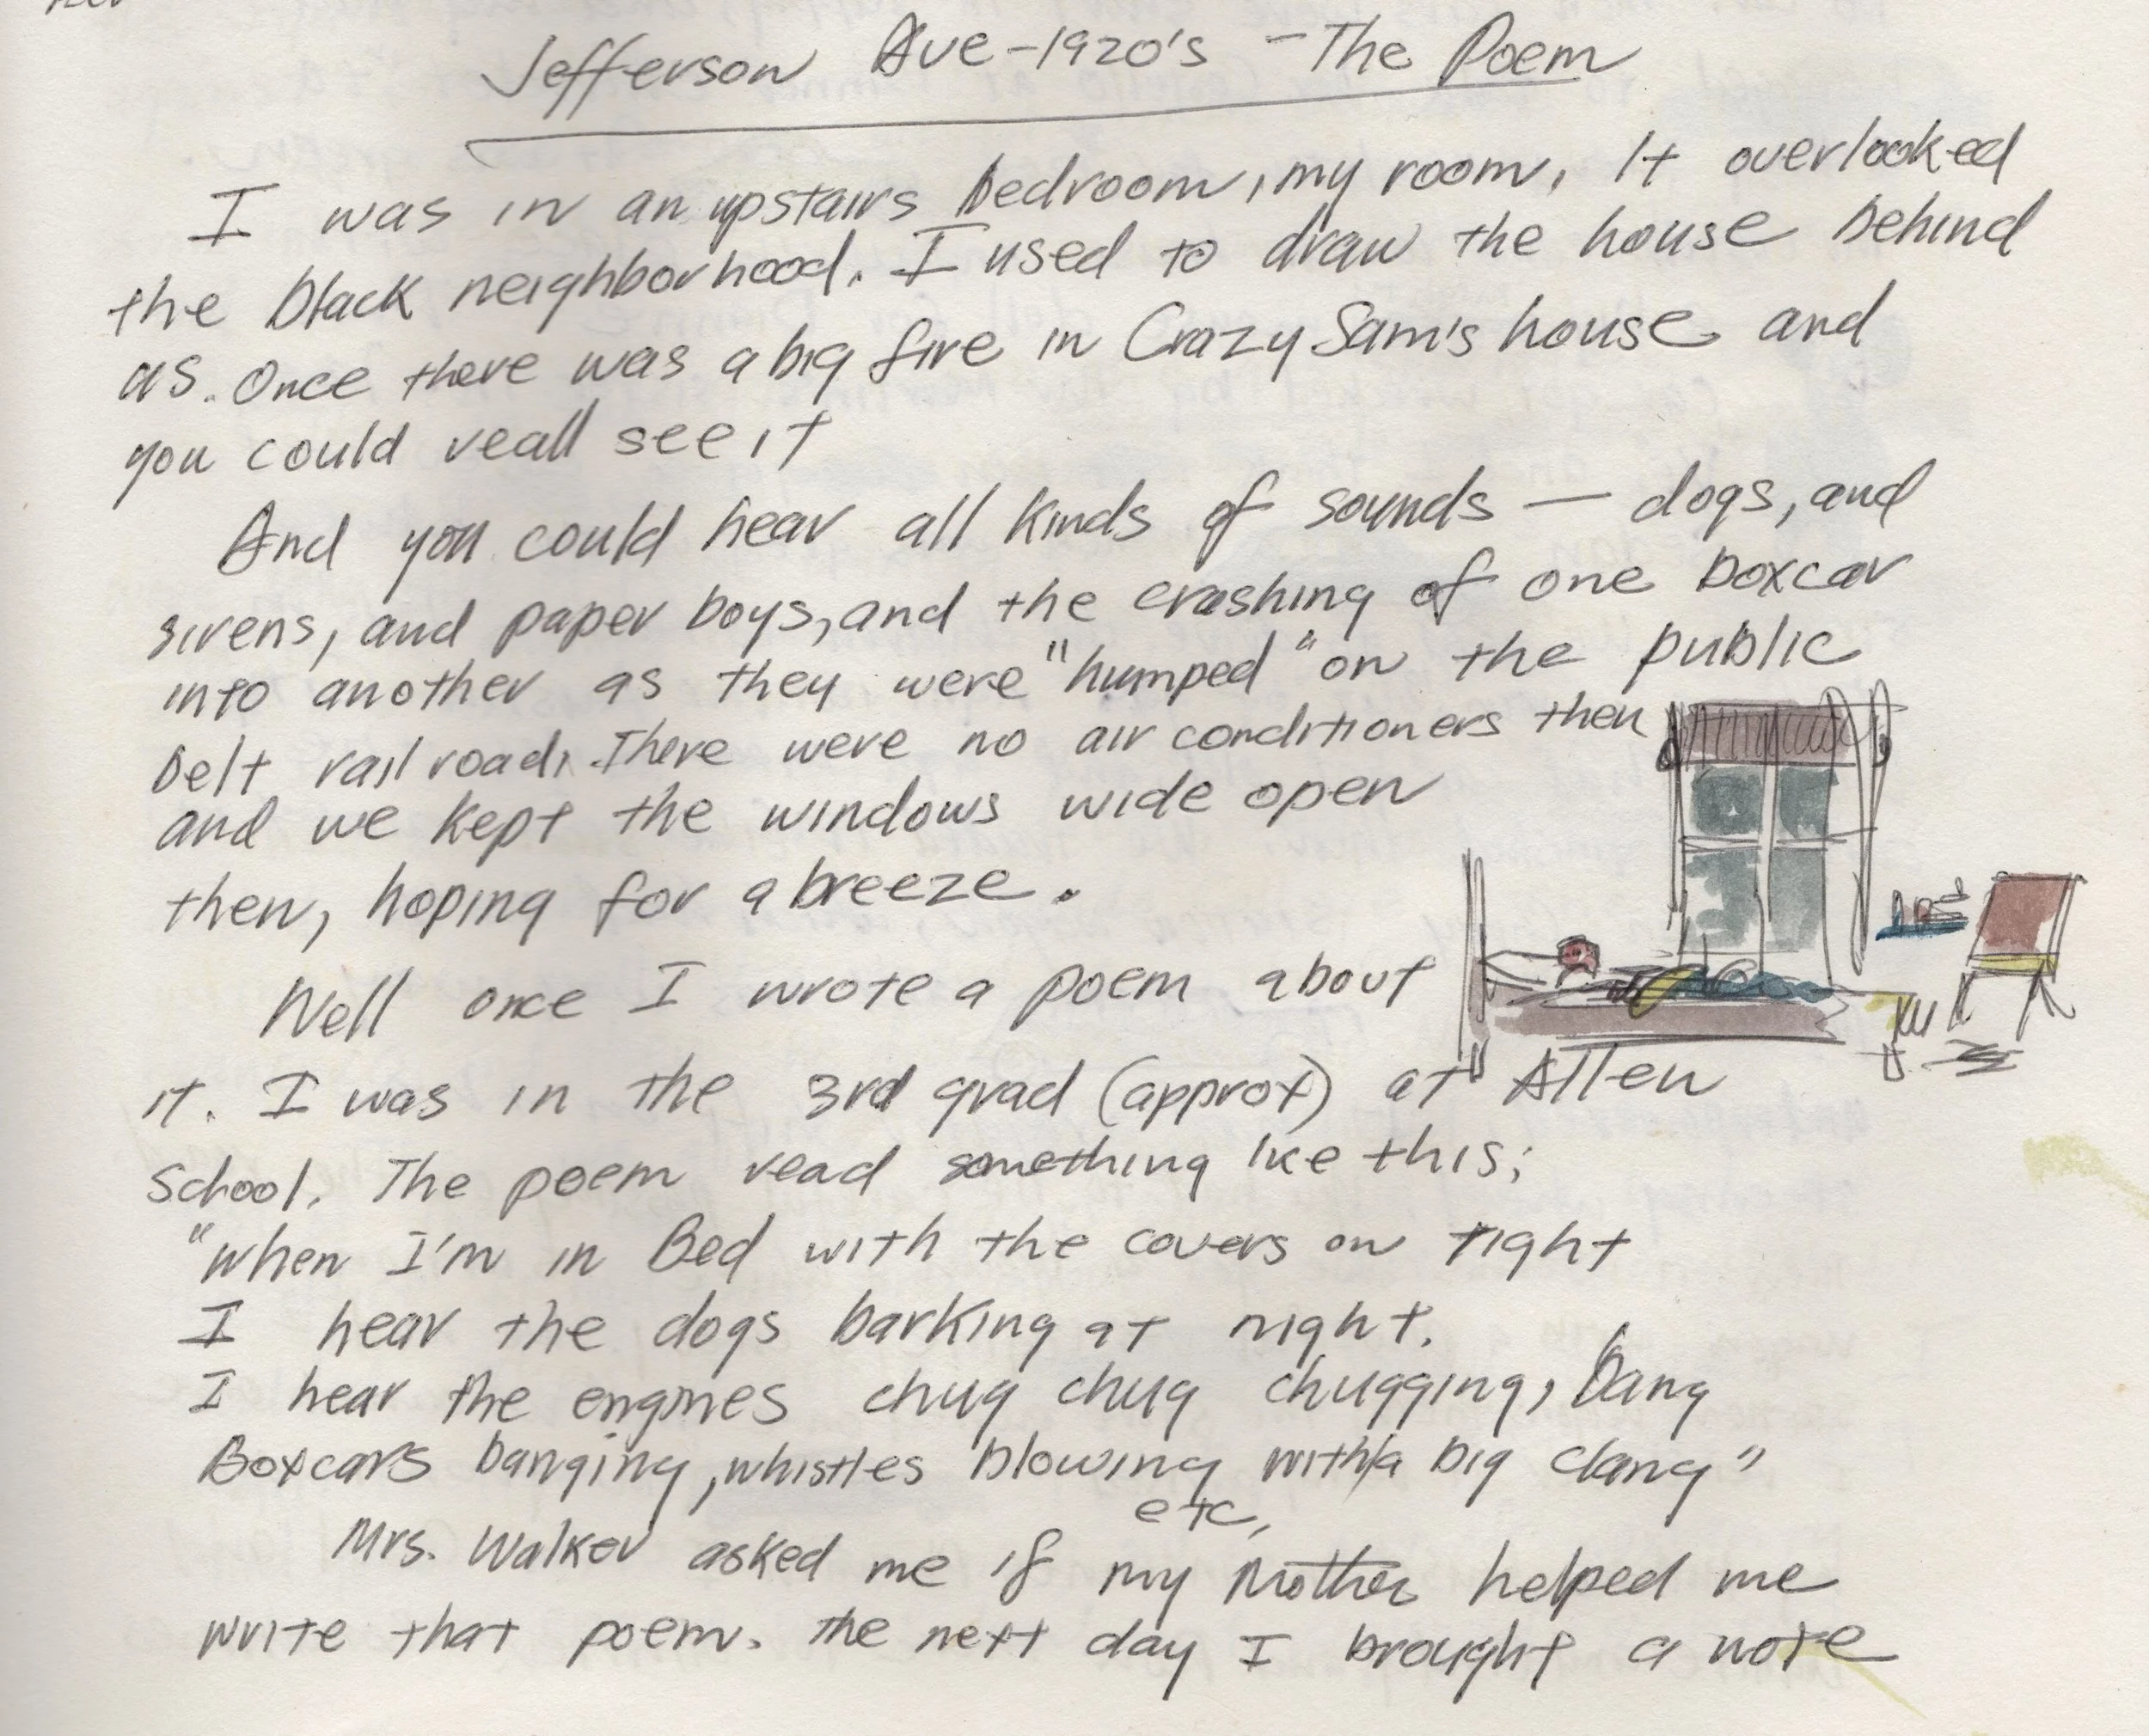 Jefferson Ave-1920's - The Poem
I was in an upstairs bedroom, my room, It overlooked
the black neighborhood. I used to draw the house behind
us. Once there was a big fire in Crazy Sam's house and
you could reall see it
And you could hear all kinds of sounds — dogs, and
sirens, and paper boys, and the crashing of one boxcar
into another as they were "humped" on the public
belt railroad. There were no air conditioners then
and we kept the windows wide open
then, hoping for a breeze.
Well once I wrote a poem about
it. I was in the 3rd grad (approx) at Allen
School. The poem read something like this;
"when I'm in Bed with the covers on tight
I hear the dogs barking at night.
I hear the engines chug chug chugging, bang
Boxcars banging, whistles blowing with a big clang"
etc,
Mrs. Walker asked me if my Mother helped me
write that poem. The next day I brought a note